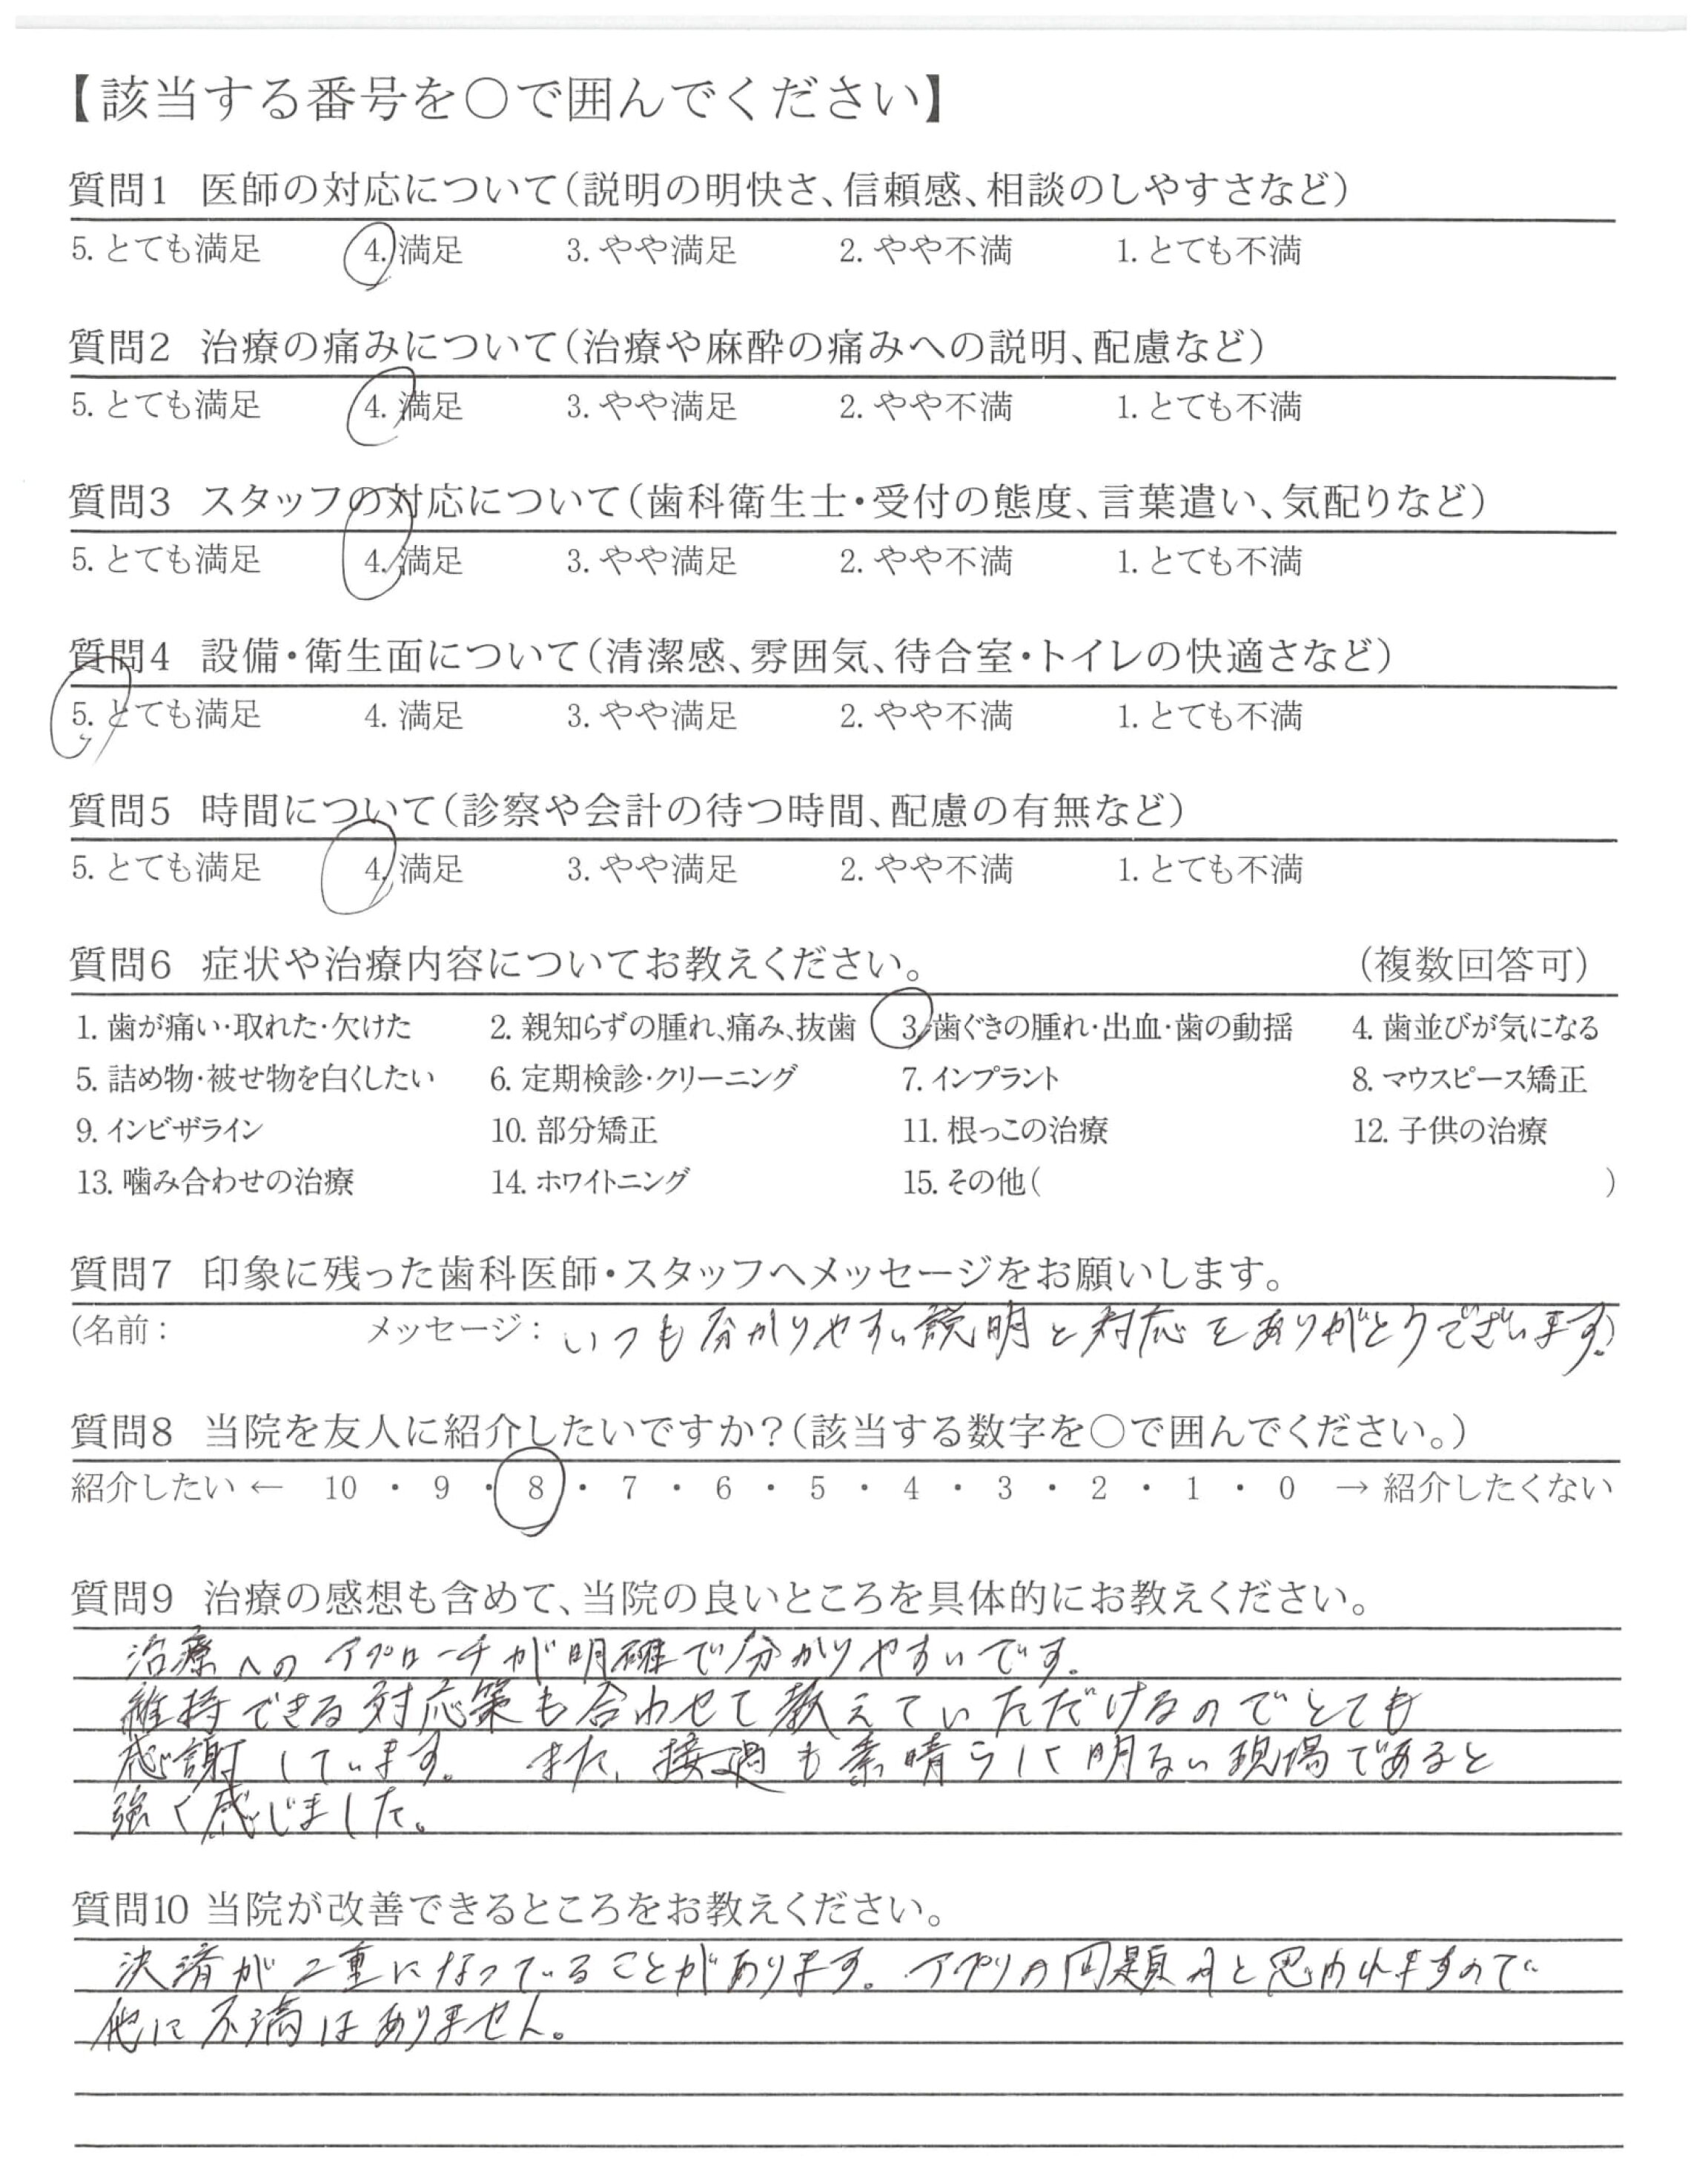 【該当する番号を○で囲んでください】
質問1 医師の対応について(説明の明快さ、信頼感、相談のしやすさなど)
5. とても満足 4. 満足 3. やや満足 2. やや不満 1. とても不満
質問2 治療の痛みについて(治療や麻酔の痛みへの説明、配慮など)
5. とても満足 4. 満足 3. やや満足 2. やや不満 1. とても不満
質問3 スタッフの対応について(歯科衛生士・受付の態度、言葉遣い、気配りなど)
5. とても満足 4. 満足 3. やや満足 2. やや不満 1. とても不満
質問4 設備・衛生面について(清潔感、雰囲気、待合室・トイレの快適さなど)
5. とても満足 4. 満足 3. やや満足 2. やや不満 1. とても不満
質問5 時間について(診察や会計の待つ時間、配慮の有無など)
5. とても満足 4. 満足 3. やや満足 2. やや不満 1. とても不満
質問6 症状や治療内容についてお教えください。 (複数回答可)
1. 歯が痛い・取れた・欠けた 2. 親知らずの腫れ、痛み、抜歯 3. 歯ぐきの腫れ・出血・歯の動揺 4. 歯並びが気になる
5. 詰め物・被せ物を白くしたい 6. 定期検診・クリーニング 7. インプラント 8. マウスピース矯正
9. インビザライン 10. 部分矯正 11. 根っこの治療 12. 子供の治療
13. 噛み合わせの治療 14. ホワイトニング 15. その他( )
質問7 印象に残った歯科医師・スタッフへメッセージをお願いします。
(名前: メッセージ: いつも分かりやすい説明と対応をありがとうございます。)
質問8 当院を友人に紹介したいですか?(該当する数字を○で囲んでください。)
紹介したい ← 10 ・ 9 ・ 8 ・ 7 ・ 6 ・ 5 ・ 4 ・ 3 ・ 2 ・ 1 ・ 0 → 紹介したくない
質問9 治療の感想も含めて、当院の良いところを具体的にお教えください。
治療へのアプローチが明確で分かりやすいです。
維持できる対応策も合わせて教えていただけるのでとても
感謝しています。また、接遇も素晴らしく明るい現場であると
強く感じました。
質問10 当院が改善できるところをお教えください。
決済が2重になっていることがあります。アプリの問題かと思われますので
他に不満はありません。